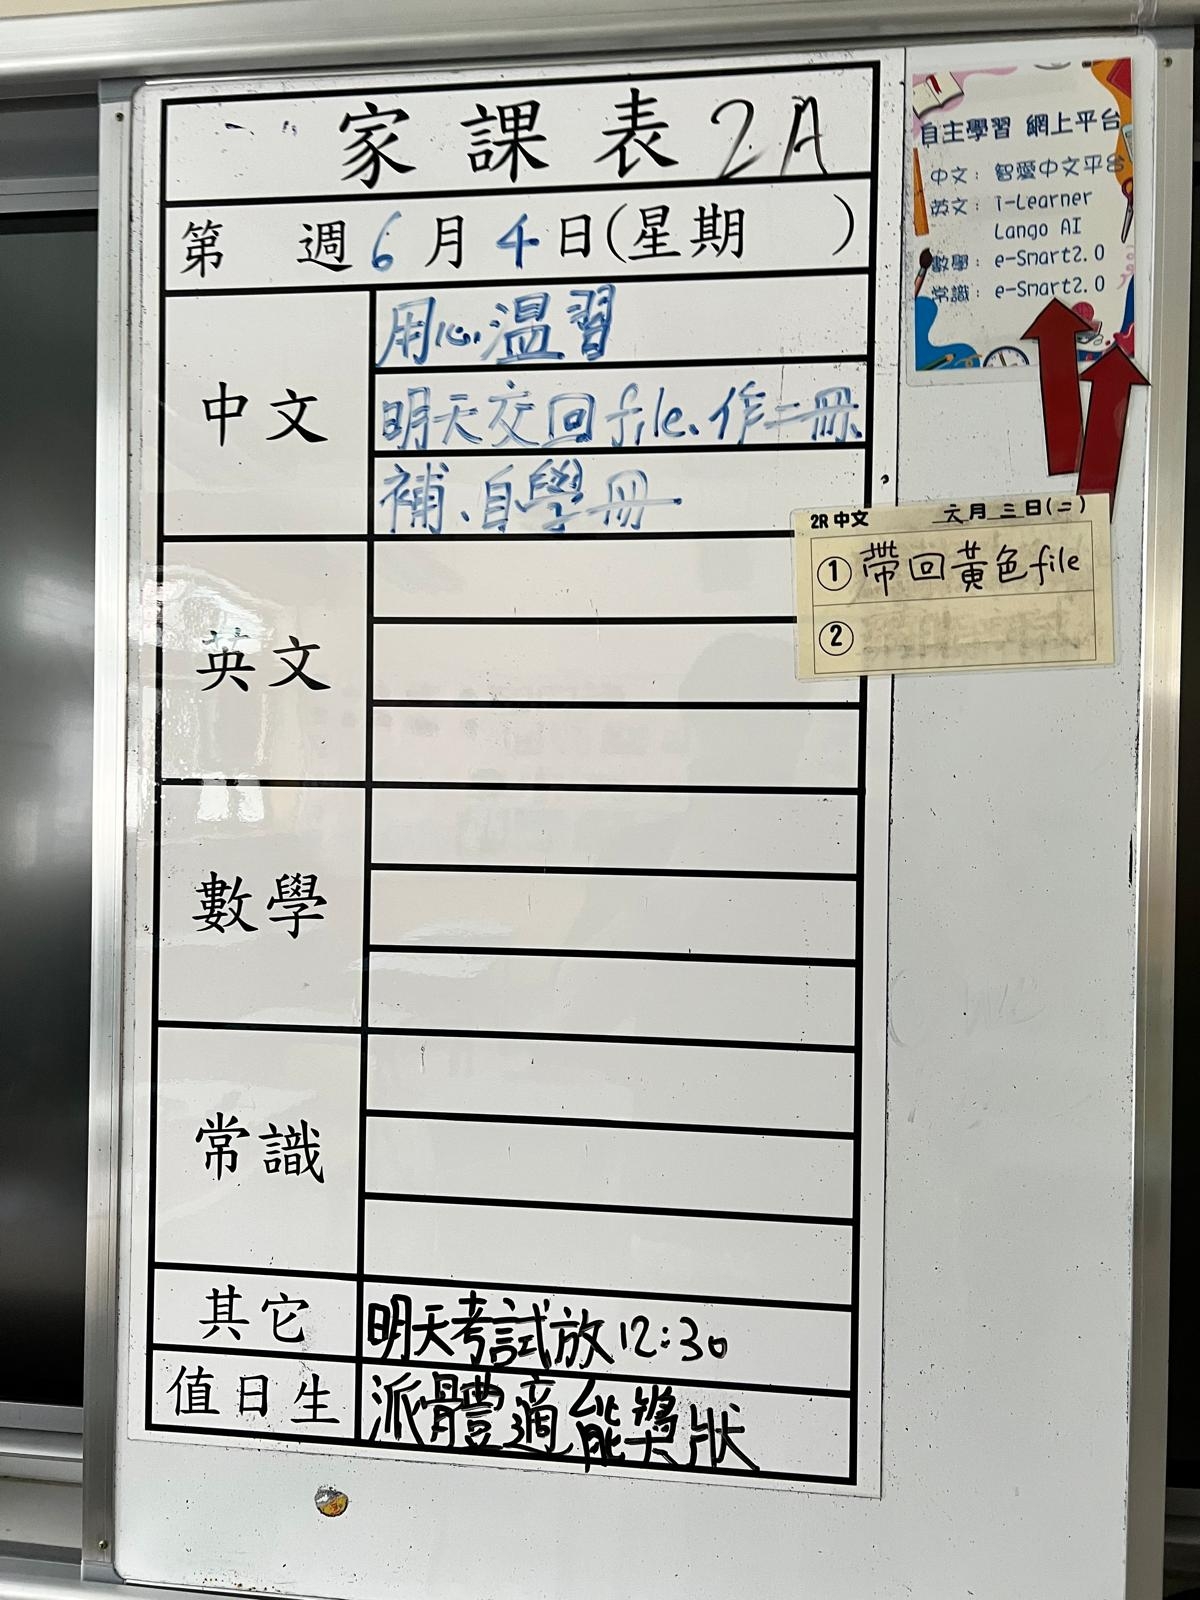 家課表 2A
第 週 6月4日(星期 )
中文
用心溫習
明天交回file、作二冊、
補、自學冊
英文
數學
常識
其它
明天考試放12:30
值日生
派體適能獎狀
自主學習 網上平台
中文： 智愛中文平台
英文： i-Learner
Lango AI
數學： e-Smart2.0
常識： e-Smart2.0
2R 中文 六月三日(二)
① 帶回黃色file
②